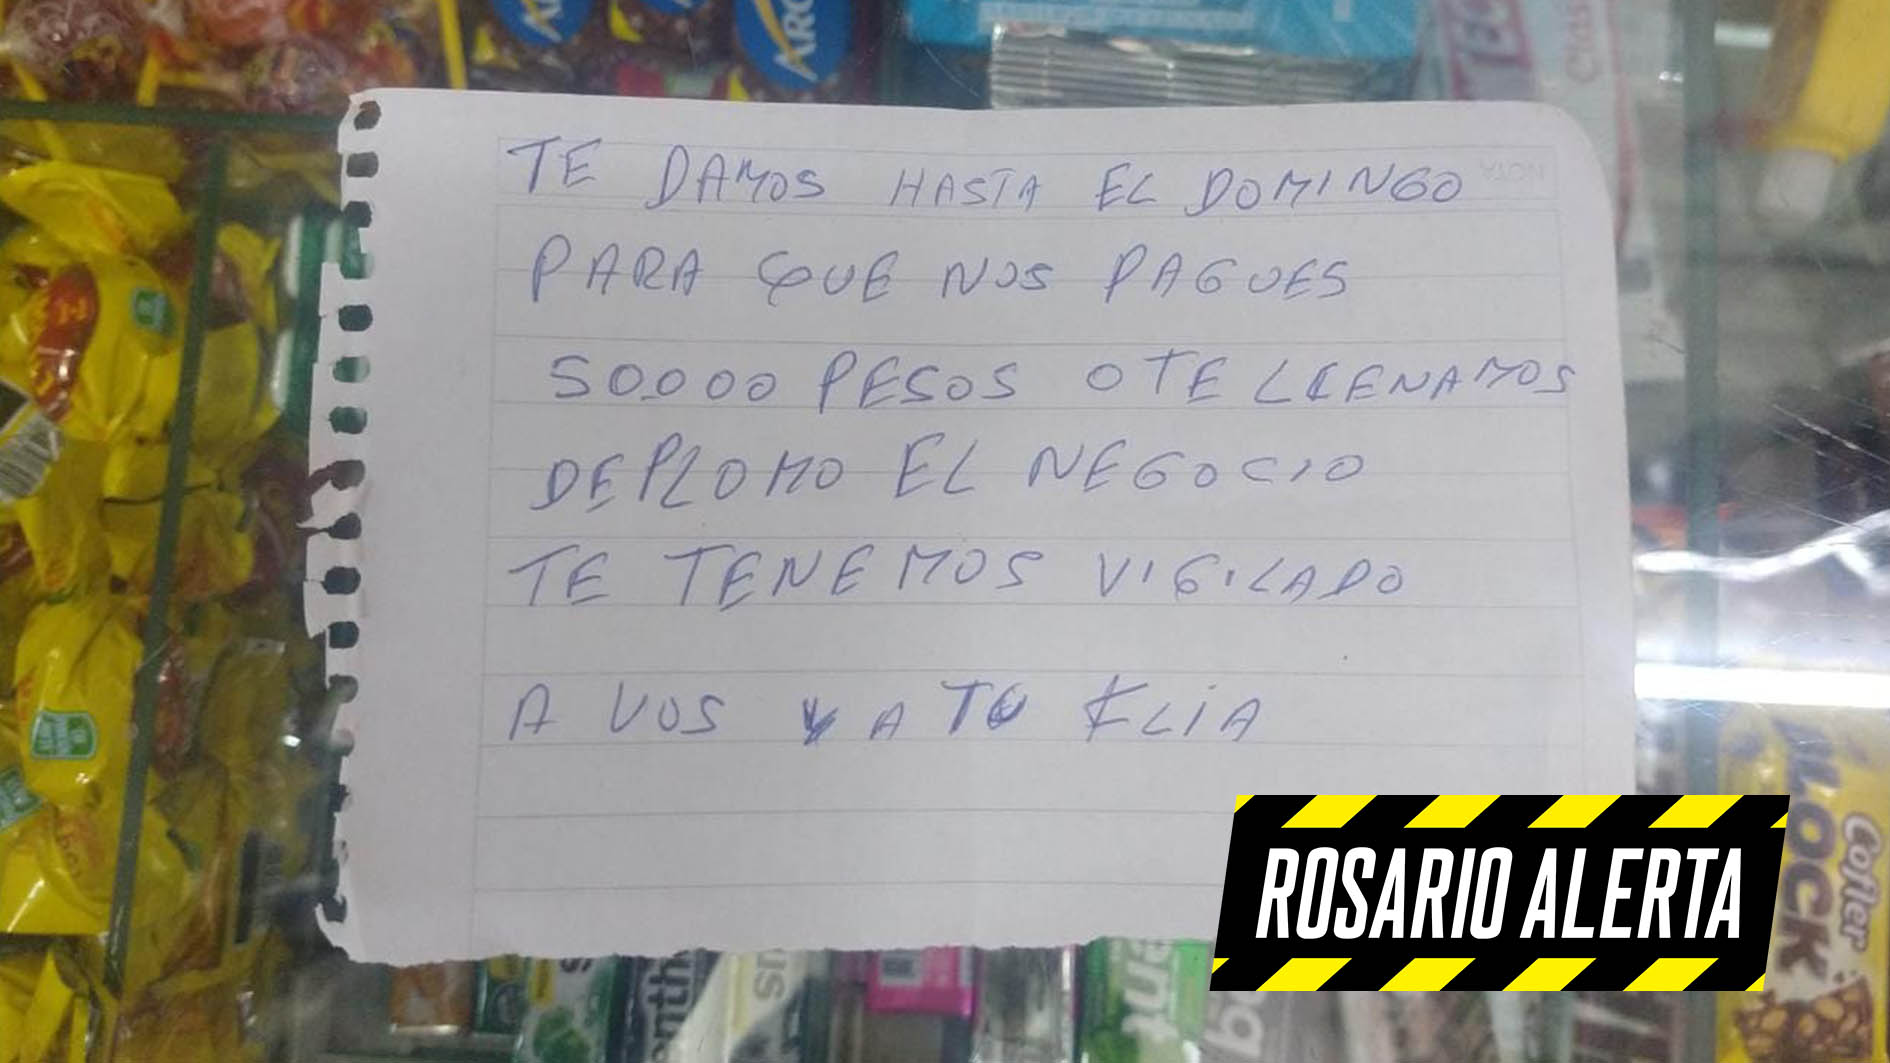 ARC
ARC
NOTA
TE DAMOS HASTA EL DOMINGO
PARA QUE NOS PAGUES
50.000 PESOS O TE LLENAMOS
DE PLOMO EL NEGOCIO
TE TENEMOS VIGILADO
A VOS Y A TU FLIA
ROSARIO ALERTA
Cofler
BLOCK